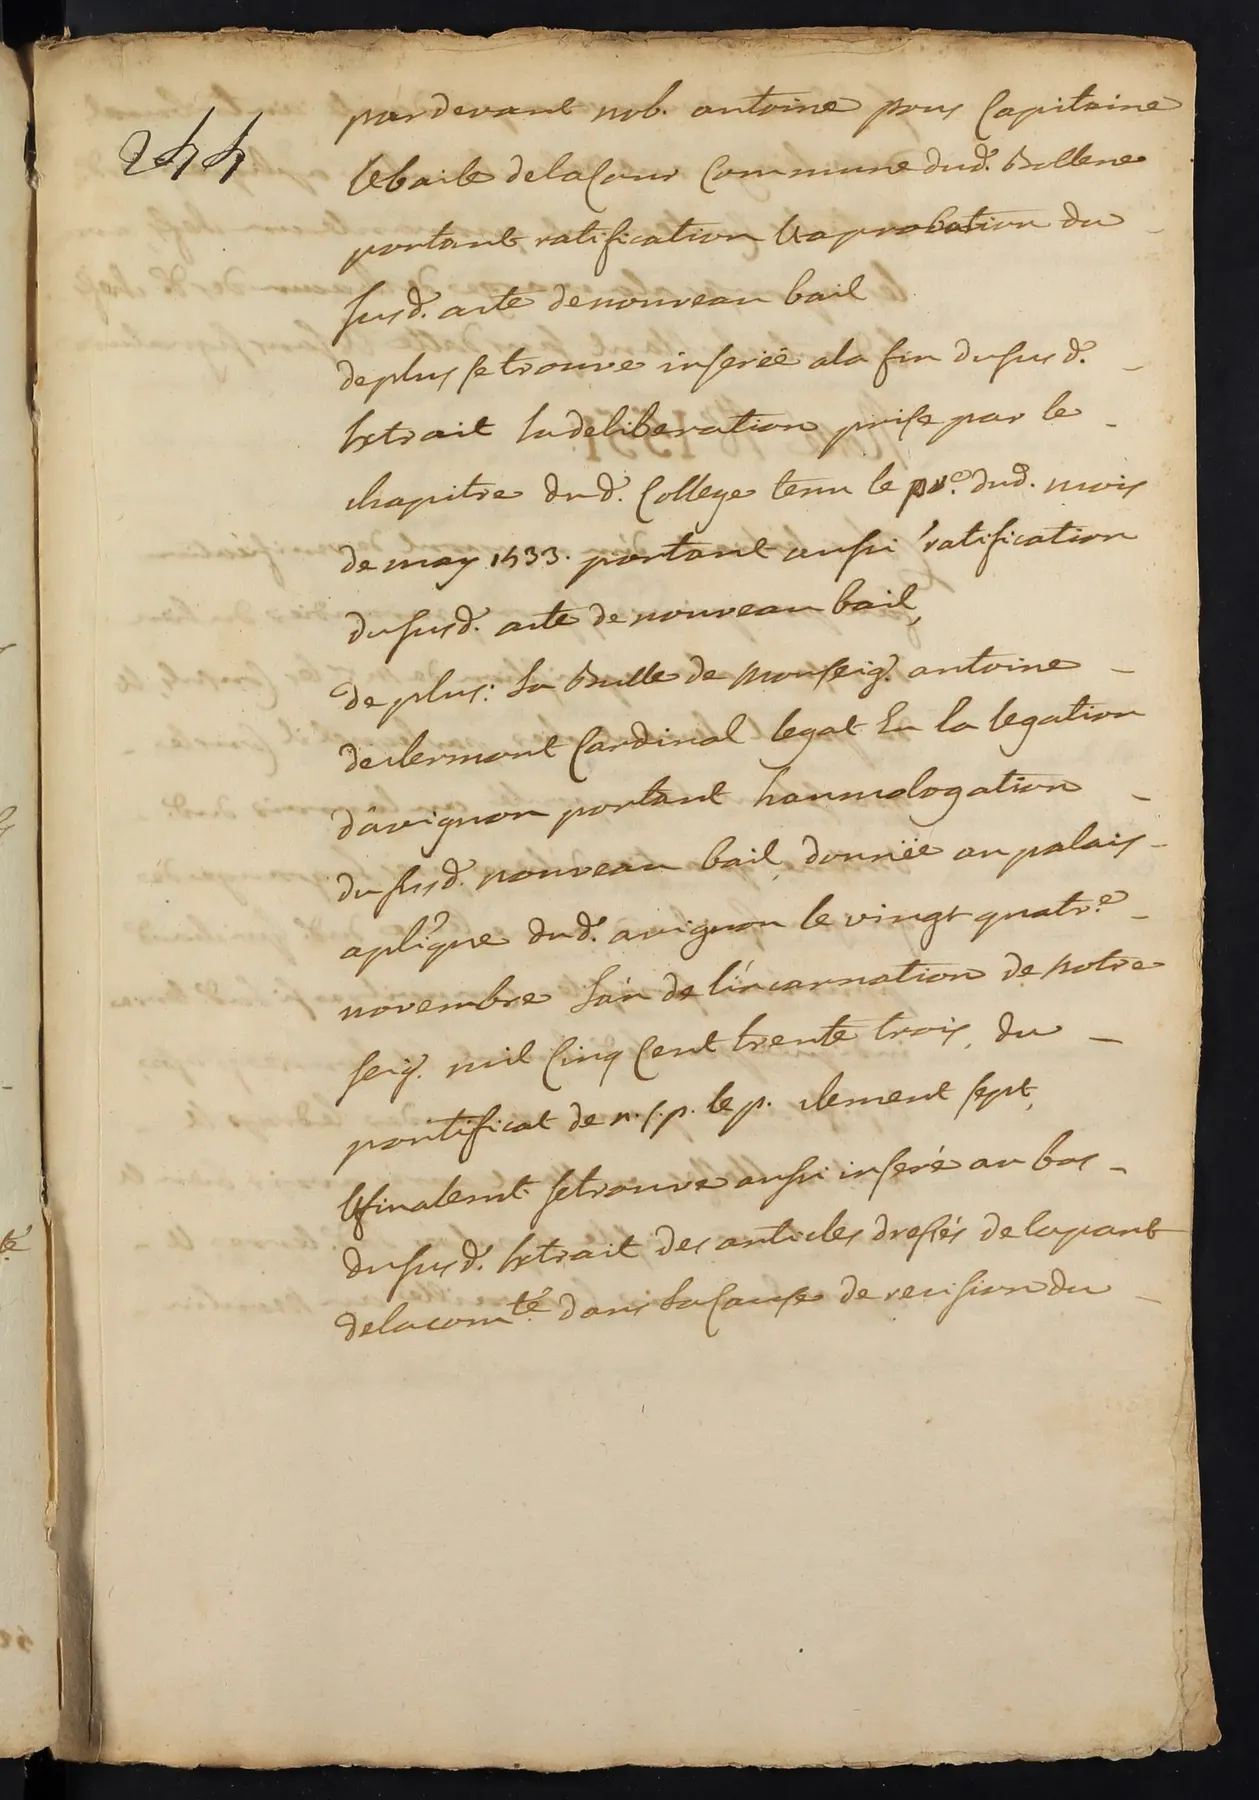 244
pardevant nob. antoine pons Capitaine
& baile de la Cour Commune dud. Bollene
portant ratification & aprobation du
susd. acte de nouveau bail
de plus se trouve inserëe a la fin du susd.
Extrait la deliberation prise par le
chapitre dud. College tenu le pr.e dud. mois
de may 1533. portant aussi ratification
du susd. acte de nouveau bail,
de plus: La Bulle de Monseig.r antoine
de clermont Cardinal legat En la legation
d'avignon portant haumologation
du susd. nouveau bail, donnëe au palais
aplique dud. avignon le vingt quatr.e
novembre L'an de l'incarnation de Notre
seig. mil Cinq Cent trente trois, du
pontificat de n. s. p. le p. clement sept,
& finalemt. se trouve aussi inseré au bas
du susd. Extrait des articles dressés de la part
de la com.té dans La Cause de revision du